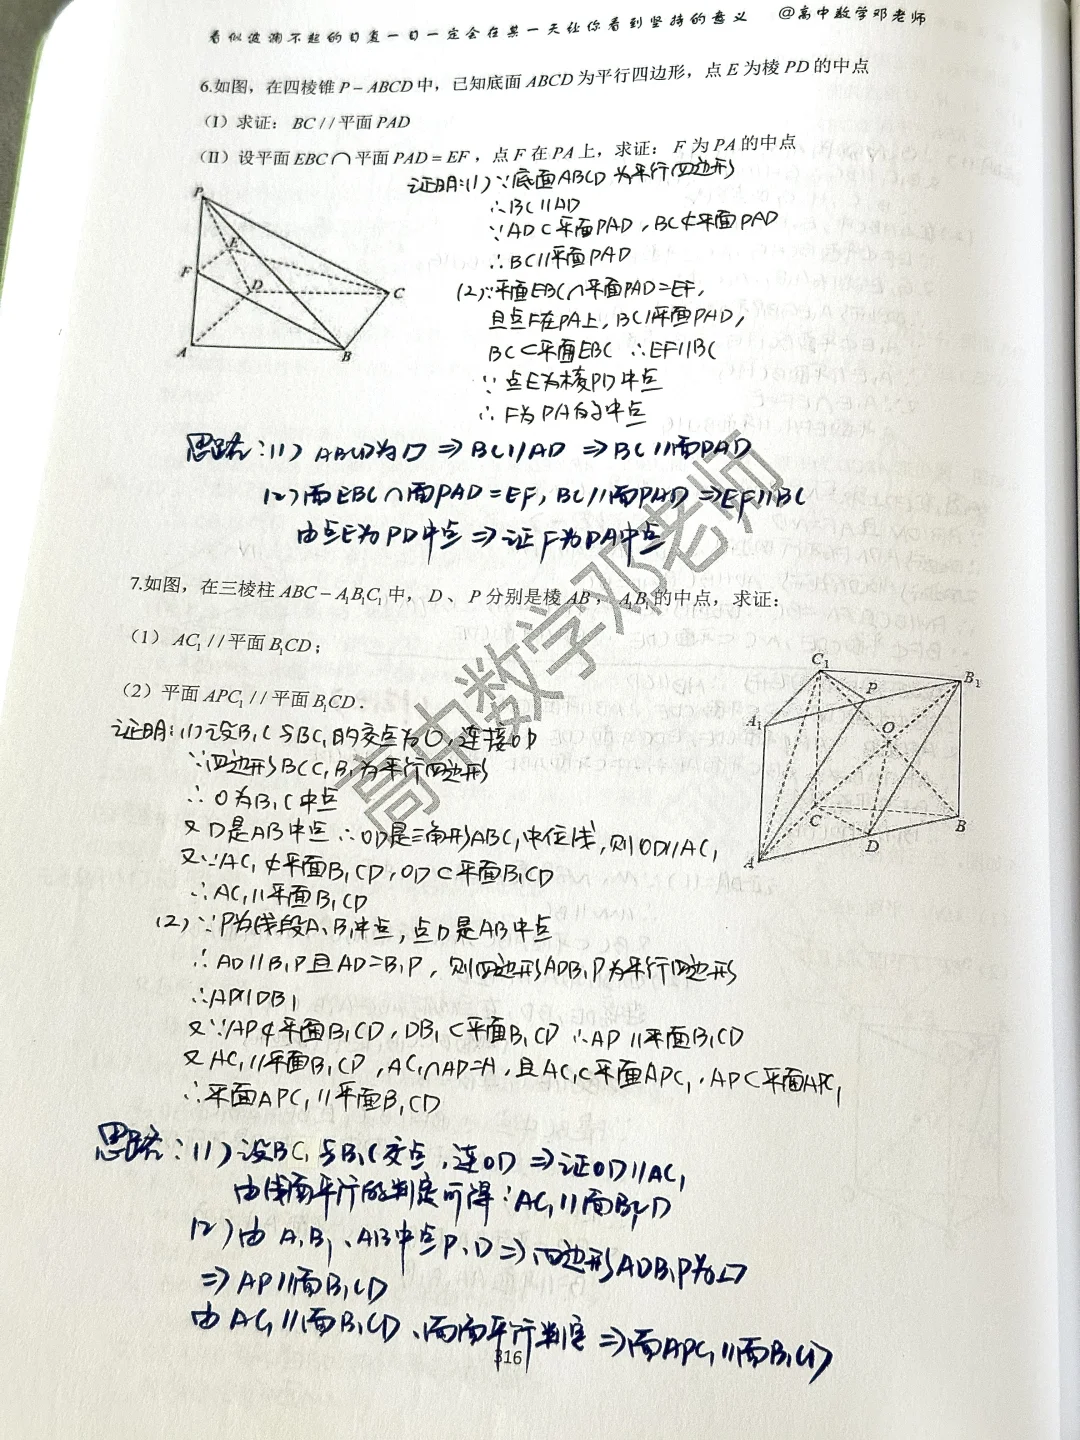 看似波澜不起的日复一日一定会在某一天让你看到坚持的意义 @高中数学邓老师
6.如图，在四棱锥 P－ABCD 中，已知底面 ABCD 为平行四边形，点 E 为棱 PD 的中点
(Ⅰ) 求证： BC // 平面 PAD
(Ⅱ) 设平面 EBC ∩ 平面 PAD = EF ，点 F 在 PA 上，求证： F 为 PA 的中点
证明:(1) ∵底面ABCD 为平行四边形
∴BC∥AD
∵AD⊂平面PAD , BC⊄平面PAD
∴BC∥平面PAD
(2)∵平面EBC∩平面PAD=EF,
且点F在PA上, BC∥平面PAD,
BC⊂平面EBC ∴EF∥BC
∵点E为棱PD中点
∴F为PA的中点
P
E
F
D
C
A
B
思路:(1) ABCD为▱ ⇒BC∥AD ⇒BC∥面PAD
(2)面EBC∩面PAD=EF, BC∥面PAD ⇒EF∥BC
由点E为PD中点⇒证F为PA中点
7.如图，在三棱柱 ABC－A₁B₁C₁ 中， D 、 P 分别是棱 AB ， A₁B₁ 的中点，求证：
(1) AC₁ // 平面 B₁CD ;
(2) 平面 APC₁ // 平面 B₁CD .
C₁
B₁
P
A₁
O
C
B
D
A
证明:(1)设B₁C与BC₁的交点为O,连接OD
∵四边形BCC₁B₁为平行四边形
∴O为B₁C中点
又D是AB中点 ∴OD是三角形ABC₁中位线,则OD∥AC₁
又∵AC₁⊄平面B₁CD,OD⊂平面B₁CD
∴AC₁∥平面B₁CD
(2)∵P为线段A₁B₁中点,点D是AB中点
∴AD∥B₁P且AD=B₁P, 则四边形ADB₁P为平行四边形
∴AP∥DB₁
又∵AP⊄平面B₁CD, DB₁⊂平面B₁CD ∴AP∥平面B₁CD
又AC₁∥平面B₁CD , AC₁∩AD=A, 且AC₁⊂平面APC₁, AP⊂平面APC₁
∴平面APC₁∥平面B₁CD
思路:(1)设BC₁与B₁C交点,连OD⇒证OD∥AC₁
由线面平行的判定可得:AC₁∥面B₁CD
(2)由A₁B₁、AB中点P、D⇒四边形ADB₁P为▱
⇒AP∥面B₁CD
由AC₁∥面B₁CD、面面平行判定⇒面APC₁∥面B₁CD
316
高中数学邓老师